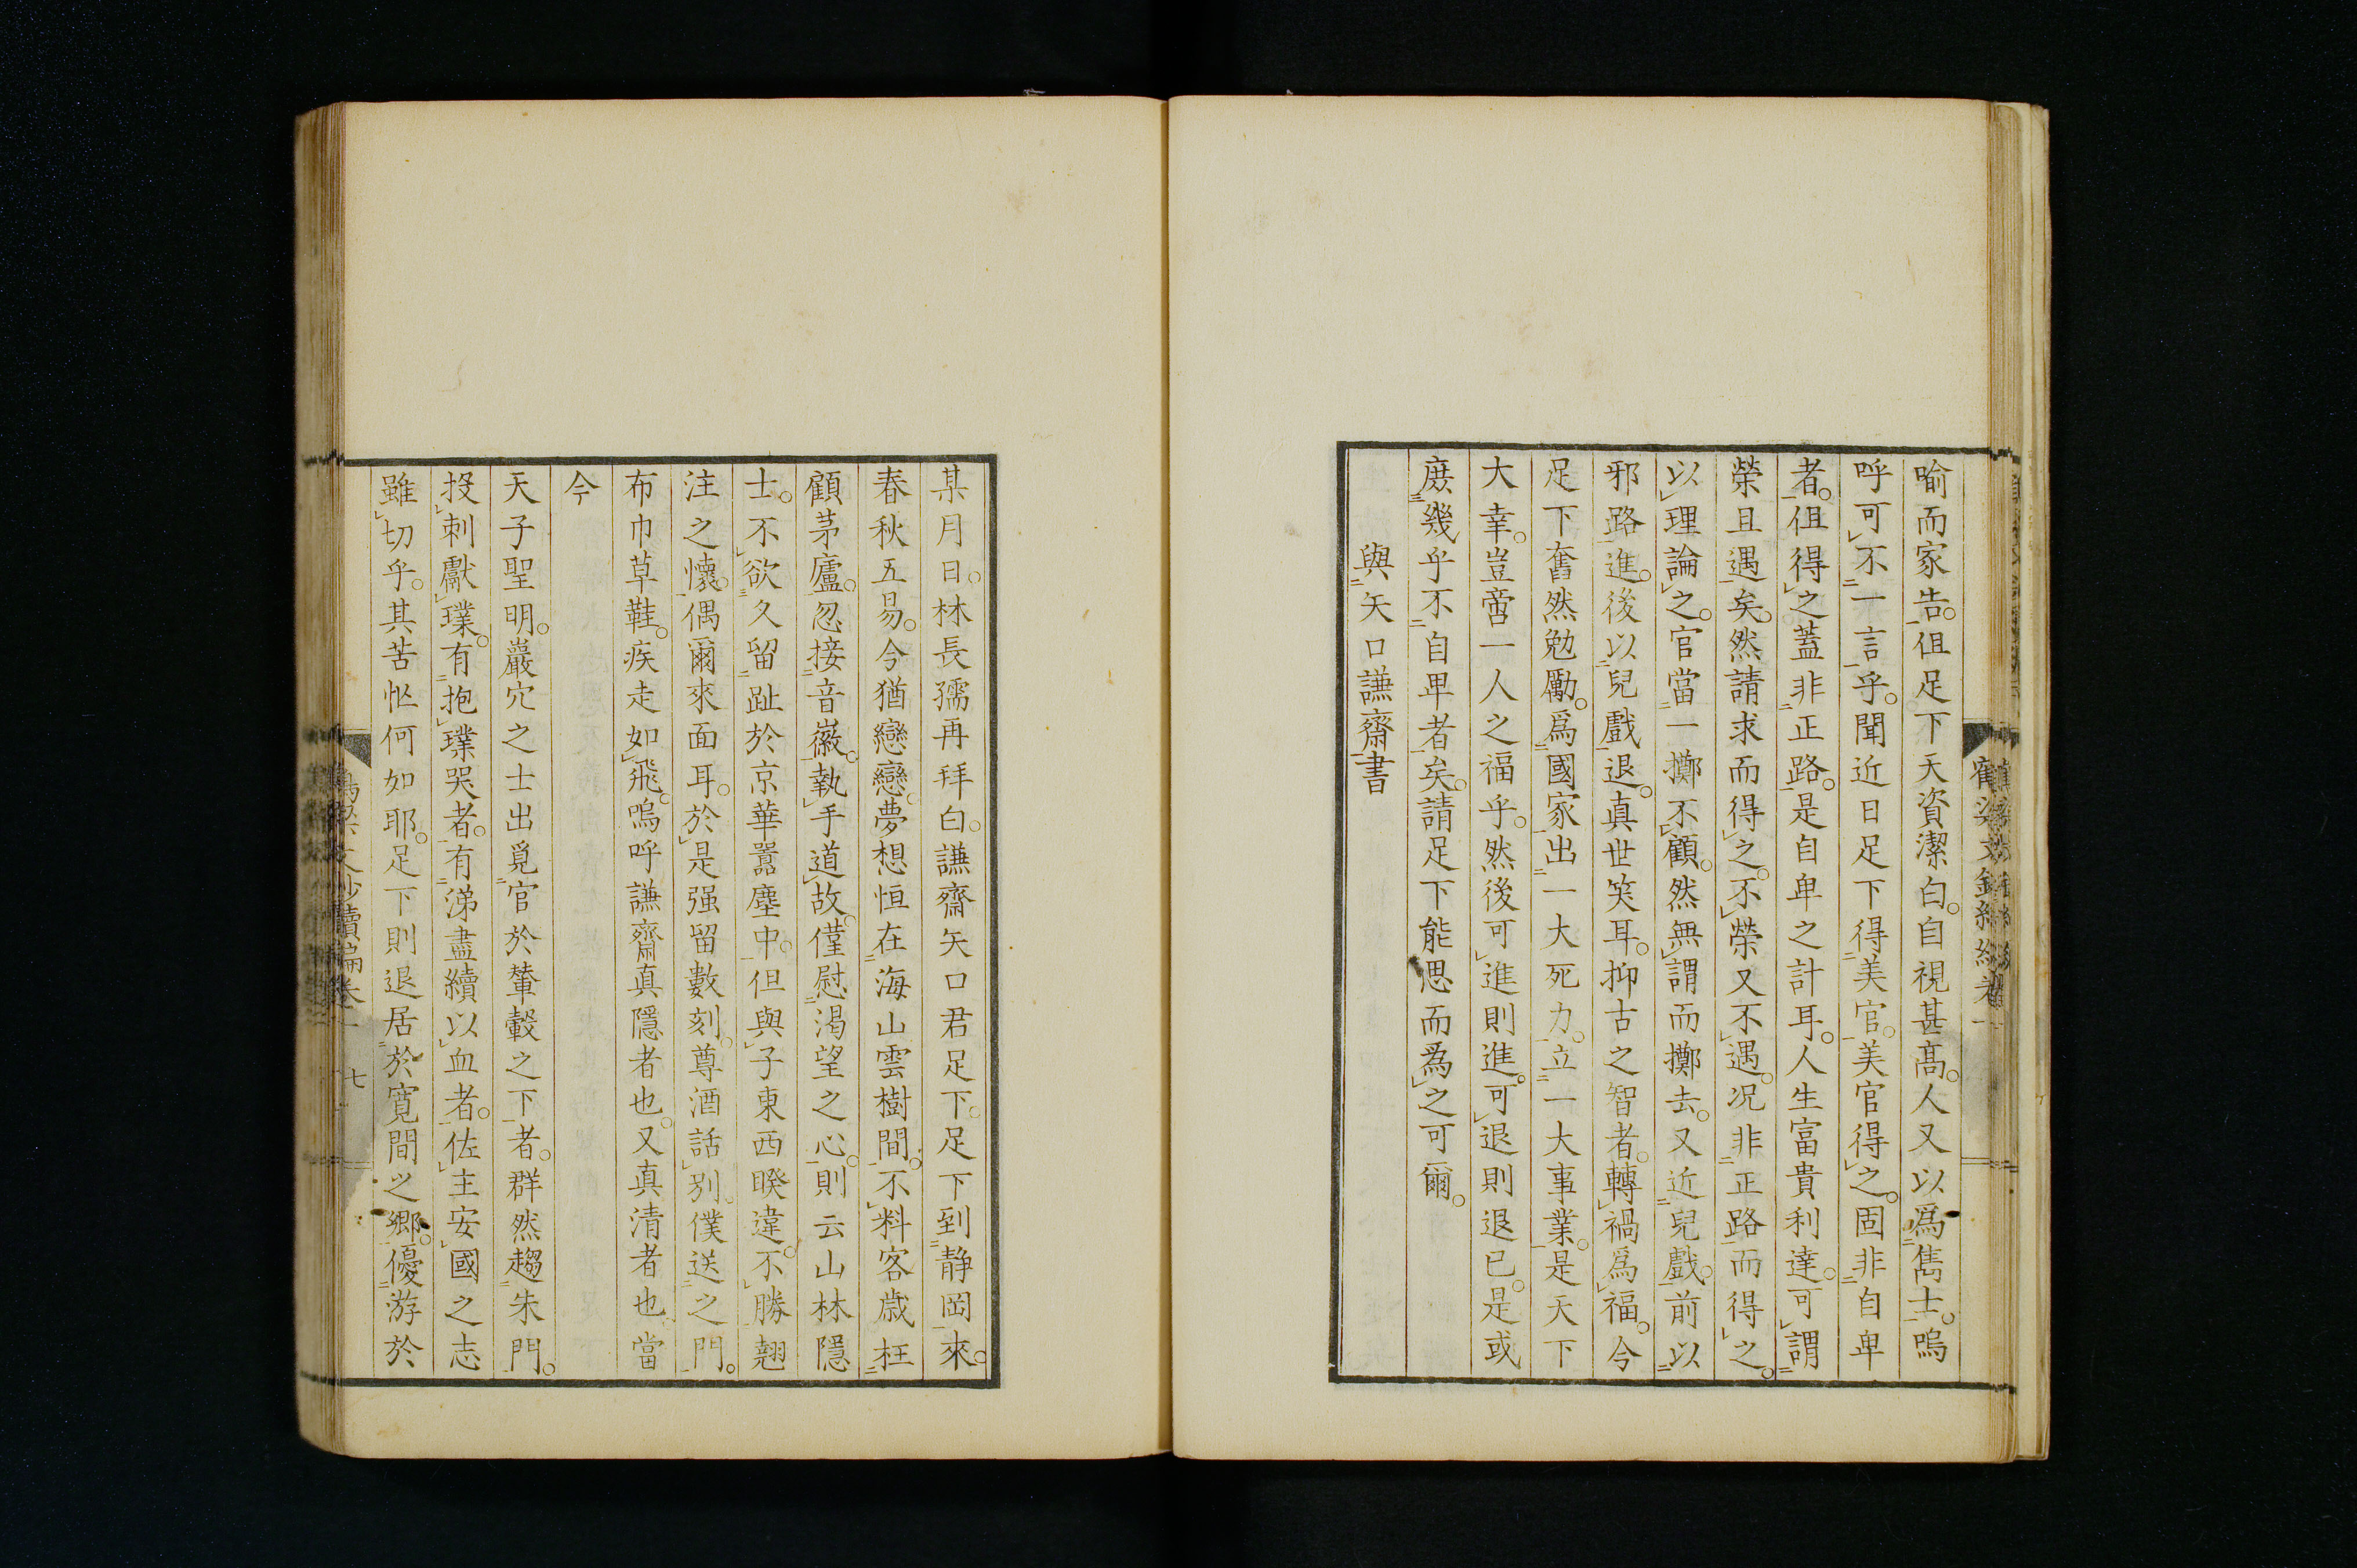 喻而家告。但足下天資潔白。自視甚高。人又以爲雋士。嗚
呼可不一言乎。聞近日足下得美官。美官得之。固非自卑
者。但得之蓋非正路。是自卑之計耳。人生富貴利達。可謂
榮且遇矣。然請求而得之。不榮又不遇。况非正路而得之。
以理論之。官當一擲不顧。然無謂而擲去。又近兒戲。前以
邪路進。後以兒戲退。真世笑耳。抑古之智者。轉禍爲福。今
足下奮然勉勵。爲國家出一大死力。立一大事業。是天下
大幸。豈啻一人之福乎。然後可進則進。可退則退已。是或
庶幾乎不自卑者矣。請足下能思而爲之可爾。
與矢口謙齋書
某月日。林長孺再拜白。謙齋矢口君足下。足下到静岡來。
春秋五易。今猶戀戀。夢想恒在海山雲樹間。不料客歲枉
顧茅廬。忽接音徽。執手道故。僅慰渴望之心。則云山林隱
士。不欲久留趾於京華囂塵中。但與子東西暌違。不勝翹
注之懷。偶爾來面耳。於是强留數刻。尊酒話別。僕送之門。
布巾草鞋。疾走如飛。嗚呼謙齋真隱者也。又真清者也。當
今
天子聖明。巖穴之士出覓官於輦轂之下者。群然趨朱門。
投刺獻璞。有抱璞哭者。有涕盡續以血者。佐主安國之志
雖切乎。其苦怅何如耶。足下則退居於寬間之鄉。優游於
文鈔續編卷一
七